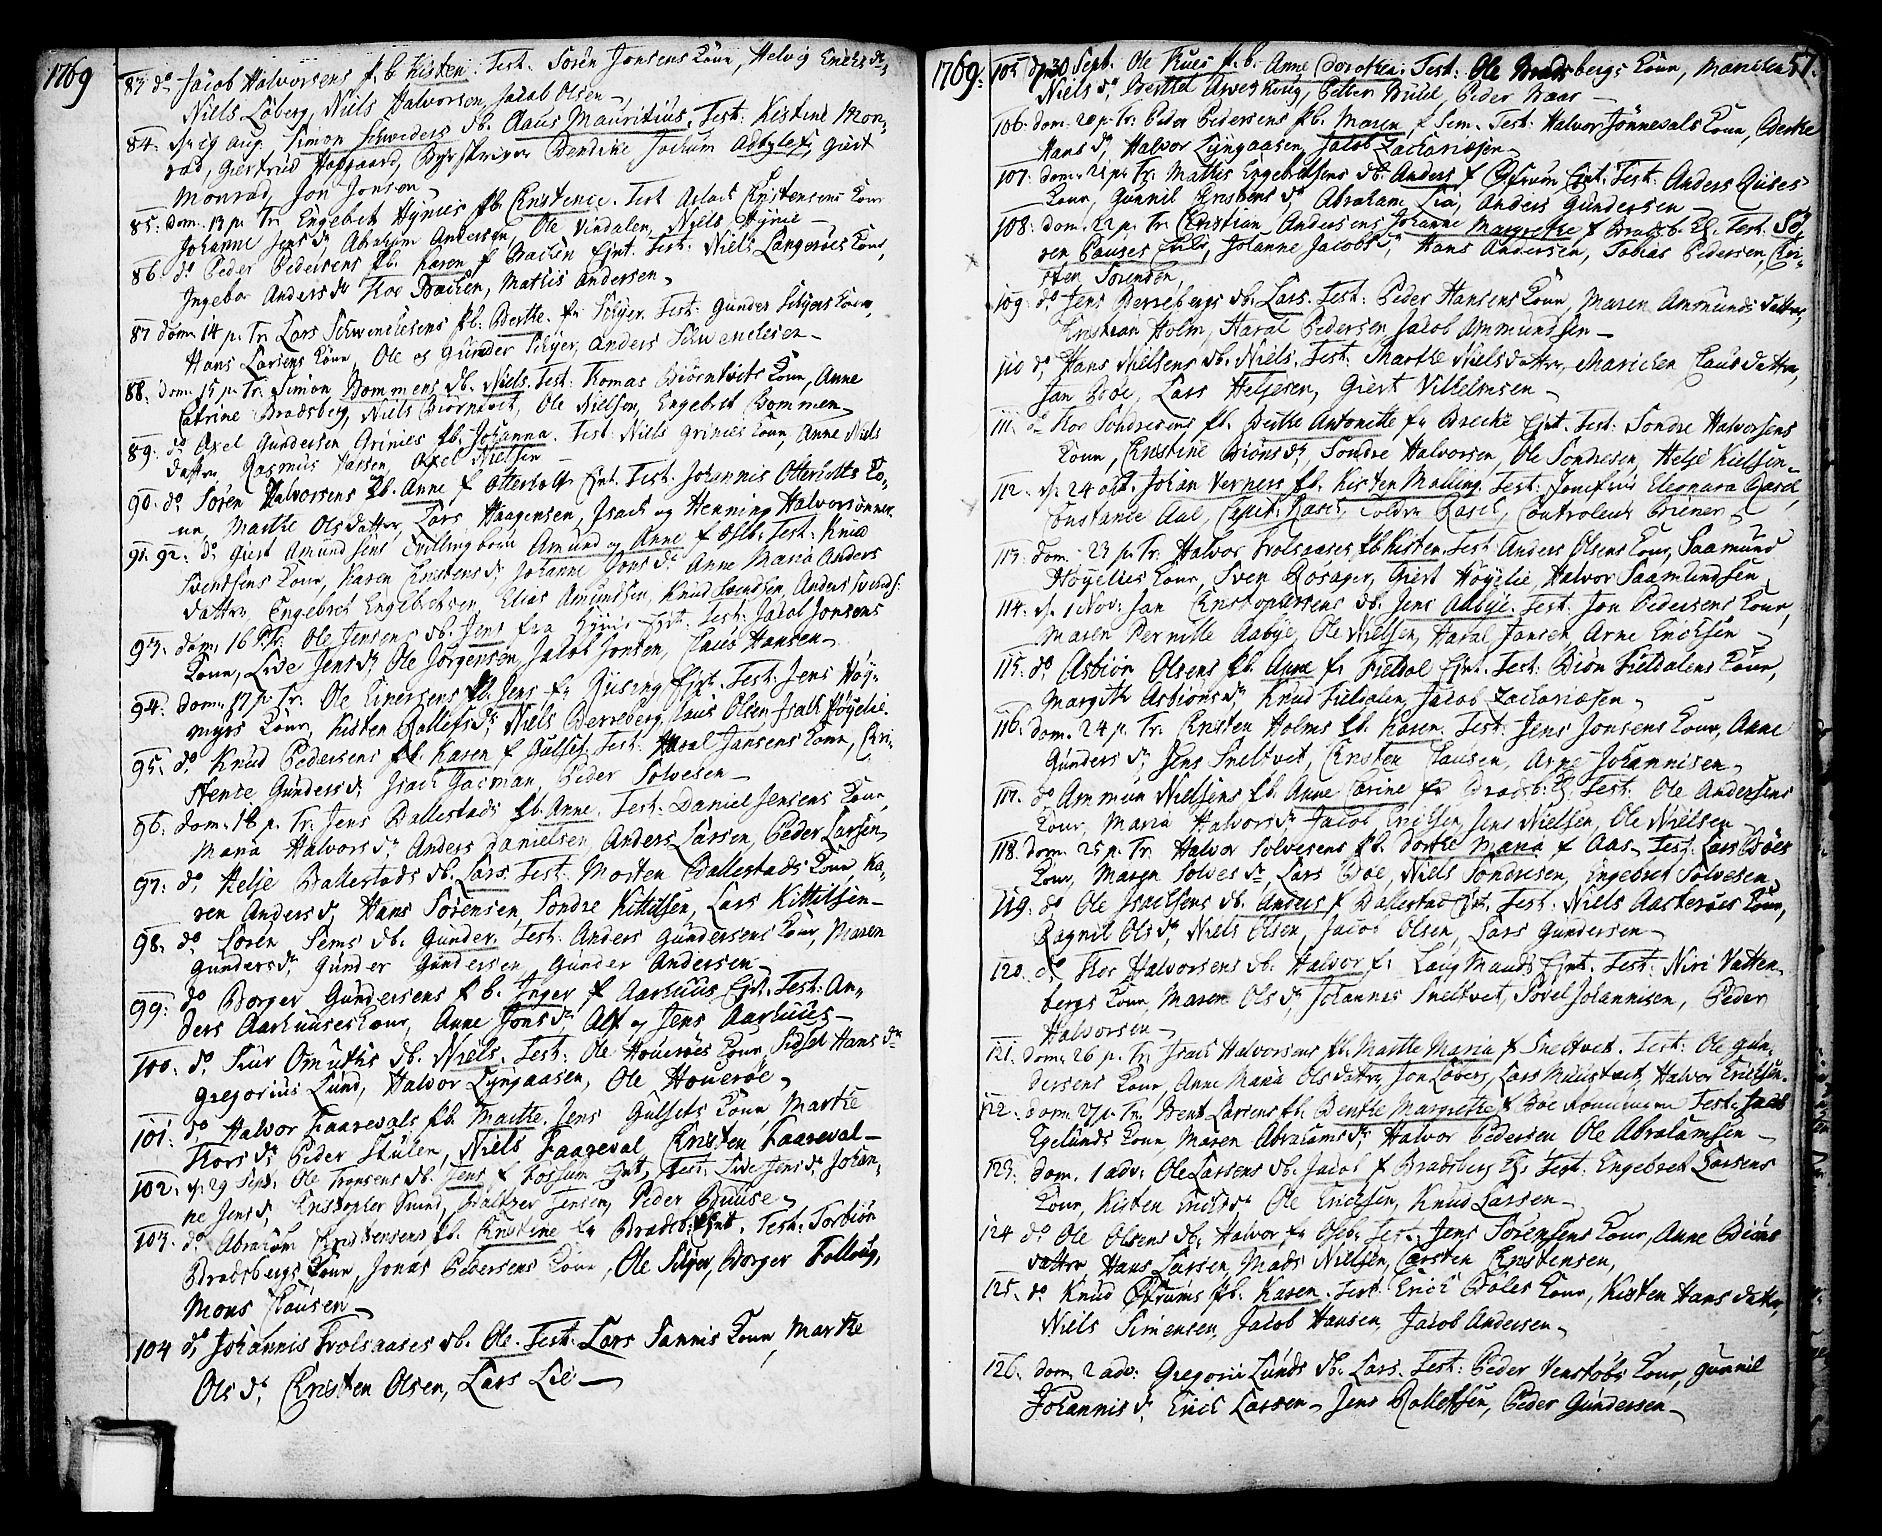 1769
83 do Jacob Halvorsens pb. Kisten. Test. Sören Jonsens Kone, Helvig Erichs dr
Niels Löberg, Niels Halvorsen, Jacob Olsen
84. d. 19 aug. Simon Schweders db. Claus Mauritius. Test: Kistine Mon-
rad, Giertrud Hofgaard, Byeskriver Bendeke Jochum Adbyles, Giert
Monrad, Jon Jonsen
85. dom. 13 p. Tr. Engebret Hynies pb. Cristence. Test Aslach Cristensens Kone
Johanne Jens dr, Abraham Andersen, Ole Vindalen, Niels Hynie
86 do Peder Pedersens pb. Karen f Bachen Ejnt. Test: Niels Langeröes Kone,
Ingebor Anders dr Thor Bachen, Mathis Andersen
87 dom. 14 p. Tr. Lars Schwenchesens pb. Berthe. fr Schyer. Test: Gunder Schyers Kone,
Hans Larsens Kone, Ole og Gunder Schyer, Anders Schwenchesen
88: dom. 15 p. Tr. Simon Bommens db. Niels. Test: Thomas Biörntvets Kone, Anne
Catrine Bradsberg, Niels Biörntvet, Ole Nielsen, Engebret Bommen
89. do Axel Gundersen Grinies pb. Johanna. Test: Niels Grinies Kone, Anne Niels
datter Rasmus Hansen, Axel Nielsen
90. do Sören Halvorsens pb. Anne f Otterholt Ejnt. Test. Johannis Otterholts Ko-
ne, Marthe Olsdatter, Lars Haagensen, Isach og Henning Halvorsönner
91. 92. do Giert Amundsens Tvillingbörn Amund og Anne f Osb. Test: Knud
Svendsens Kone, Karen Cristens dr Johanne Jons dr Anne Maria Anders
datter Engebret Engebretsen, Elias Amundsen, Knud Svendsen, Anders Svends:
93. dom. 16 p. Tr. Ole Jensens db. Jens fra Hynie Ejnt. Test: Jacob Jonsens
Kone, Live Jens dr Ole Jörgensen, Jacob Jonsen, Claus Hansen
94. dom. 17 p. Tr. Ole Evensens db. Jens fr Riising Ejnt. Test: Jens Höy-
myrs Kone, Kisten Rollefs dr, Niels Berreberg, Claus Olsen Isach Höyelie
95. do Knud Pedersens pb. Karen f Gulset, Test: Haral Jansens Kone, Cri-
stence Gunders dr Isach Jacman, Peder Solvesen
96. dom. 18 p. Tr. Jens Ballestads pb. Anne. Test: Daniel Jensens Kone,
Maria Halvors dr Anders Danielsen, Anders Larsen, Peder Larsen
97. do Helje Ballestads db. Lars. Test. Morten Ballestads Kone Ka-
ren Anders dr, Hans Sörensen, Sondre Kittilsen, Lars Kittilsen
98. do Sören Sems db. Gunder. Test: Anders Gundersens Kone, Maren
Gunders dr Gunder Gundersen Gunder Andersen
99. do Borger Gundersens pb. Inger f Aarhuus Ejnt. Test: An-
ders Aarhuuses Kone, Anne Jons dr, Alf og Jens Aarhuus
100. do Siur Omutkis db. Niels. Test: Ole Houeröes Kone, Sidsel Hans dr
Gregorius Lund, Halvor Lyngaasen, Ole Houeröe
101. do Halvor Faarevals pb. Marthe. Jens Gulsets Kone, Marthe
Thors dr Peder Stulen, Niels Faareval Cristen Faareval
102. d. 29 Sept. Ole Tronsens db. Jens f Fossum Ejnt, Test: Live Jens dr Johan-
ne Jens dr, Cristopher Svend, Halvor Jensen, Peder Buuse
103. do Abraham Cristensens pb. Cristine fr Bradsb. Ejnt. Test: Torbiön
Bradsbergs Kone, Jonas Pedersens Kone, Ole Schyer, Borger Follaug,
Mons Clausen
104 do Johannis Trolsaases db. Ole. Test: Lars Sannis Kone, Marthe
Ols dr, Cristen Olsen, Lars Lie
1769.
57.
105 d. 30 Sept. Ole Rues pb. Anne Dorothea. Test: Ole Bradsbergs Kone, Marichen
Niels dr, Berthel Arveskoug, Petter Buul, Peder Baar
106. dom. 20 p. Tr. Peder Pedersens pb. Maren f Sem. Test: Halvor Jönnevals Kone, Berthe
Hans dr, Halvor Lyngaasen, Jacob Zachariesen
107. dom. 21 p. Tr. Mathis Engebretsens db. Anders f Ejnt. Test: Anders Riises
Kone, Gunnil Cristens dr, Abraham Lia, Anders Gundersen
108. dom. 22 p. Tr. Cristian Andersens Johanne Margrethe f Bradsb. Ej. Test. Sö-
ren Pouses Enke, Johanne Jacobs dr, Hans Andersen, Tobias Pedersen, Cri-
sten Sörensen
109. do Jens Berrebergs db. Lars. Test: Peder Hansens Kone, Maren Amunds datter,
Cristian Holm, Haral Pedersen, Jacob Ammundsen
110 do Hans Nielsens db. Niels. Test: Marthe Nielsdatter, Marichen Clausdatter,
Jan Böe, Lars Heljesen, Giert Vilhelmsen
111. do Thor Sondresens pb. Berthe Antonette fr Breche Ejnt. Test: Sondre Halvorsens
Kone, Cristine Biöns dr, Sondre Halvorsen, Ole Sondresen, Helje Kielsen
112. d. 24 oct. Johan Verners pb. Kirsten Malling. Test: Josefine Eleonora Rasch,
Constance Aal, Capit: Rasch, Tolder Rasch, Controleur Briener
113. dom. 23 p. Tr. Halvor Trolsaases pb. Kisten. Test Anders Olsens Kone, Saamund
Höyelies Kone, Sven Rosager, Giert Höyelie, Halvor Saamundsen
114. d. 1 Nov: Jan Cristophersens db. Jens Aabye. Test: Jon Pedersens Kone,
Maren Pernille Aabye, Ole Nielsen, Haral Jansen, Arne Erichsen
115. do Asbiön Olsens pb. Anne fr Fieldal Ejnt. Test: Biön Fieldalens Kone,
Margith Asbiöns dr, Knud Fieldalen, Jacob Zachariesen
116. dom. 24 p. Tr. Cristen Holms pb. Karen. Test: Jens Jonsens Kone, Anne
Gunders dr, Jens Sneltvet, Cristen Clausen, Arne Johannisen
117. do Ammun Nielsens pb. Anne Carine fr Bradsb. Ej. Test. Ole Andersens
Kone, Maria Halvors dr Jacob Erichsen, Jens Nielsen, Ole Nielsen
118. dom. 25 p. Tr. Halvor Solvesens pb. Dorthe Maria f Aas. Test. Lars Böes
Kone, Maren Solves dr, Lars Böe, Niels Sondresen, Engebret Solvesen
119. do Ole Isachsens db. Anders f Ballestad Ejnt. Test: Niels Aasteröes Kone,
Ragnil Ols dr, Niels Olsen, Jacob Olsen, Lars Gundersen
120. do Thor Halvorsens db. Halvor fr Laugmands Ejnt. Test: Niri Vatten-
bergs Kone, Maren Ols dr, Johannes Sneltvet, Sövel Johannisen, Peder
Halvorsen
121. dom. 26 p. Tr. Isach Halvorsens pb. Marthe Maria f Sneltvet. Test: Ole Gun-
dersens Kone, Anne Maria Olsdatter, Jon Löberg, Lars Muustvet, Halvor Erichsen
122. dom. 27 p. Tr. Bent Larsens pb. Benthe Margrethe f Böe Test: Jacob
Egelunds Kone, Maren Abrahams dr Halvor Pedersen Ole Abrahamsen
123. dom. 1 adv: Ole Larsens db. Jacob f Bradsberg Ej: Test: Engebret Larsens
Kone, Kisten Erichs dr Ole Erichsen, Knud Larsen
124 do Ole Olsens db. Halvor fr Osb. Test: Jens Sörensens Kone, Anne Biöns
datter Hans Larsen, Mads Nielsen, Carsten Cristensen,
125. do Knud Ostrums pb. Karen. Test: Erich Böles Kone, Kisten Hans datter,
Niels Simensen, Jacob Hansen, Jacob Andersen
126. dom. 2 adv: Gregorii Lunds db. Lars. Test: Peder Venstöbs Kone, Gunnil
Johannis dr, Erich Larsen, Jens Rollefsen, Peder Gundersen